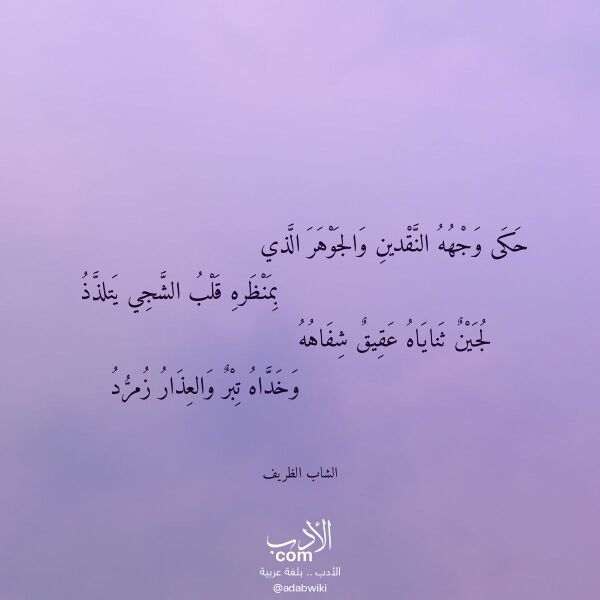 حَكَى وَجْهُهُ النَّقْدينِ وَالجَوْهَرَ الَّذي
بِمَنْظَرهِ قَلْبُ الشَّجِي يَتلذَّذُ
لُجَيْنٌ ثَنايَاهُ عَقِيقٌ شِفَاهُهُ
وَخَدَّاهُ تِبْرٌ وَالعِذَارُ زُمرُّدُ
الشاب الظريف
الأدب
.com
الأدب .. بلغة عربية
@adabwiki